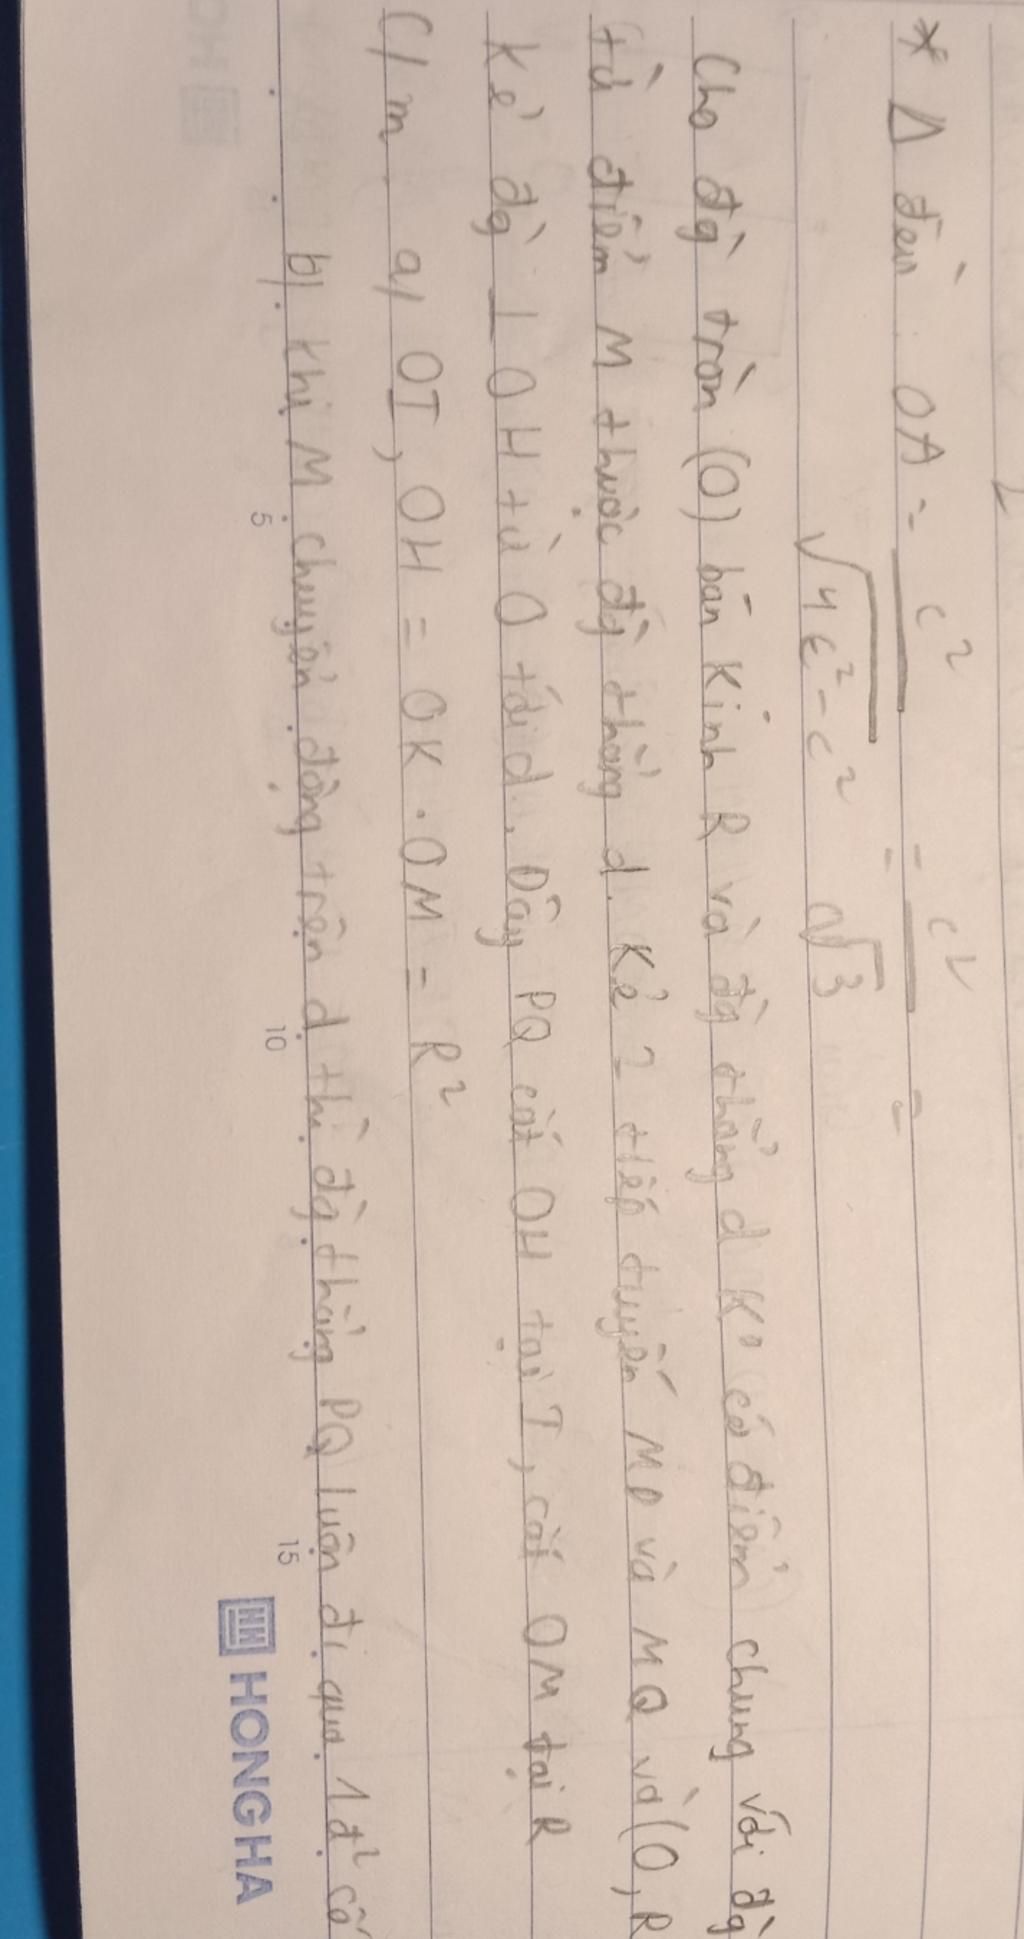 * Δ đều : OA = c² / √4c²-c² = c² / a√3 =
Cho đg̀ tròn (O) bán kính R và đg̀ thẳng d k⁰ có điểm chung với đg̀
từ điểm M thuộc đg̀ thẳng d. Kẻ 2 tiếp tuyến MP và MQ với (O, R
Kẻ đg̀ ⊥ OH từ O tới d. Dây PQ cắt OH tại I, cắt OM tại K
C/m a, OI, OH = OK . OM = R²
b, khi M chuyển động trên d thì đg̀ thẳng PQ luôn đi qua 1đ² cố
5 10 15
HONG HA